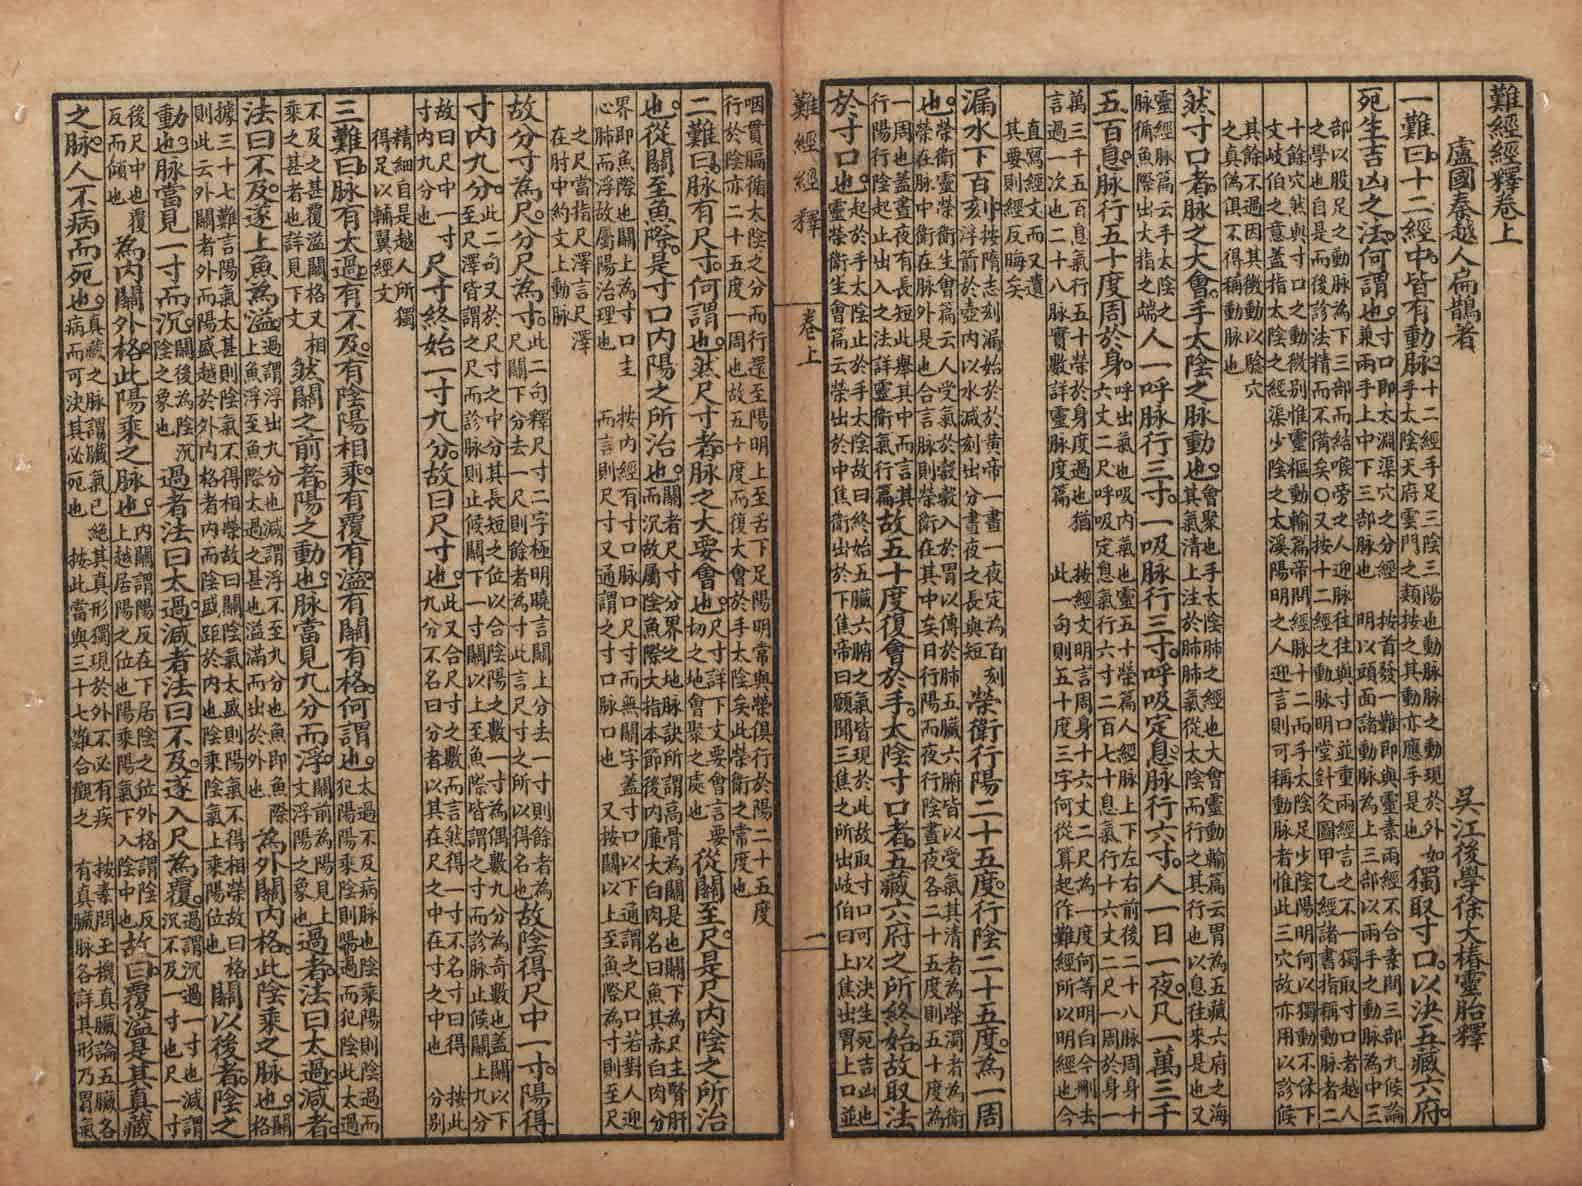 難經經釋卷上
盧國秦越人扁鵲著　吳江後學徐大椿靈胎釋
一難曰十二經中皆有動脈十二經手足三陰三陽也動脈脈之動現於外如手太陰天府雲門之類按之其動亦應手是也獨取寸口以決五藏六府
死生吉凶之法何謂也寸口即太淵渠穴之分經兼兩手上中下三部脈也　按首發一難即與靈素兩經不合素問三部九候論明以頭面諸動脈為上三部以兩手之動脈為中三
部以股足之動脈為下三部而結喉旁之人迎脈往往與寸口並重兩經言之不一獨取寸口者越人之學也自是而後診法精而不備矣○又按十二經之動脈明堂針灸圖甲乙經諸書指稱動脈者二
十餘穴然與寸口之動微別惟靈樞動輸篇帝問經脈十二而手太陰足少陰陽明何以獨動不休下文岐伯之意蓋指太陰之經渠少陰之太溪陽明之人迎言則可稱動脈者惟此三穴故亦用以診候
其餘不過因其微動以驗穴之真偽俱不得稱動脈也
然寸口者脈之大會手太陰之脈動也會聚也手太陰肺之經也大會靈動輸篇云胃為五藏六府之海其氣清上注於肺肺氣從太陰而行之其行也以息往來是也又
靈經脈篇云手太陰之脈循魚際出大指之端人一呼脈行三寸一吸脈行三寸呼吸定息脈行六寸人一日一夜凡一萬三千
五百息脈行五十度周於身呼出氣也吸內氣也靈五十榮篇人經脈上下左右前後二十八脈周身十六丈二尺呼吸定息氣行六寸二百七十息氣行十六丈二尺一周於身一
萬三千五百息氣行五十榮於身度過也猶言過一次也二十八脈實數詳靈脈度篇　按經文明言周身十六丈二尺為一度何等明白今刪去此一句則五十度三字何從算起作難經所以明經也今
直寫經文而又遺其要則經反晦矣
漏水下百刻按隋志刻漏始於黃帝一晝一夜定為百刻浮箭於壺內以水減刻出分晝夜之長與短榮衛行陽二十五度行陰二十五度為一周
也榮衛靈榮衛生會篇云人受氣於穀穀入於胃以傳於肺五臟六腑皆以受氣其清者為榮濁者為衛榮在脈中衛在脈外是也合言脈則榮衛在其中矣日行陽而夜行陰晝夜各二十五度則五十度為
一周也蓋晝夜有長短此舉其中而言其行陽行陰起止出入之法詳靈衛氣行篇故五十度復會於手太陰寸口者五藏六府之所終始故取法
於寸口也起於手太陰止於手太陰故曰終始五臟六腑之氣皆現於此故取寸口可以決生死吉凶也靈榮衛生會篇云榮出於中焦衛出於下焦帝曰願聞三焦之所出岐伯曰上焦出胃上口並
難經經釋　卷上　一
咽貫膈循太陰之分而行還至陽明上至舌下足陽明常與榮俱行於陽二十五度行於陰亦二十五度一周也故五十度而復大會於手太陰矣此榮衛之常度也
二難曰脈有尺寸何謂也然尺寸者脈之大要會也尺寸詳下文要會言要切之地會聚之處也從關至尺是尺內陰之所治
也從關至魚際是寸口內陽之所治也關者尺寸分界之地脈訣所謂高骨為關是也關下為尺主腎肝而沉故屬陰魚際大指本節後內廉大白肉名曰魚其赤白肉分
界即魚際也關上為寸口主心肺而浮故屬陽治理也　按內經有寸口脈口尺寸而無關字蓋寸口以下通謂之尺口若對人迎而言則尺寸又通謂之寸口脈口也　又按關以上至魚際為寸則至尺
之尺當指尺澤言尺澤在肘中約文上動脈
故分寸為尺分尺為寸此二句釋尺寸二字極明曉言關上分去一寸則餘者為尺關下分去一尺則餘者為寸此言尺寸之所以得名也故陰得尺中一寸陽得
寸內九分此二句又於尺寸之中分其長短之位以合陰陽之數一寸為偶數九分為奇數也蓋關以下至尺澤皆謂之尺而診脈則止候關下一寸關以上至魚際皆謂之寸而診脈止候關上九分
故曰尺中一寸寸內九分也尺寸終始一寸九分故曰尺寸也此又合尺寸之數而言然得一寸不名寸曰得九分不名曰分者以其在尺之中在寸之中也　按此分別
精細自是越人所獨得足以輔翼經文
三難曰脈有太過有不及有陰陽相乘有覆有溢有關有格何謂也太過不及病脈也陰乘陽則陰過而犯陽陽乘陰則陽過而犯陰此太過
不及之甚者也覆溢關格又相乘之甚者也詳見下文然關之前者陽之動也脈當見九分而浮關前為陽見上文浮陽之象也過者法曰太過減者
法曰不及遂上魚為溢過謂浮出九分也減謂浮不至九分也魚即魚際上魚浮至魚際太過之甚也溢滿而出於外也為外關內格此陰乘之脈也關格
據三十七難言陽氣太甚則陰氣不得相榮故曰關陰氣太盛則陽氣不得相榮故曰格則此云外關者外而陽盛越於外內格者內而陰盛距於內也陰乘陰氣上乘陽位也關以後者陰之
動也脈當見一寸而沉關後為陰沉陰之象也過者法曰太過減者法曰不及遂入尺為覆過謂沉過一寸也減謂沉不及一寸也尺一寸
後尺中也覆反而傾也為內關外格此陽乘之脈也內關謂陽反在下居陰之位外格謂陰反上越居陽之位也陽乘陽氣下入陰中也故曰覆溢是其真藏
之脈人不病而死也真藏之脈謂臟氣已絕其真形獨現於外不必有疾病而可決其必死也　按此當與三十七難合觀之　按素問玉機真臟論五臟各有真臟脈各詳其形乃胃氣